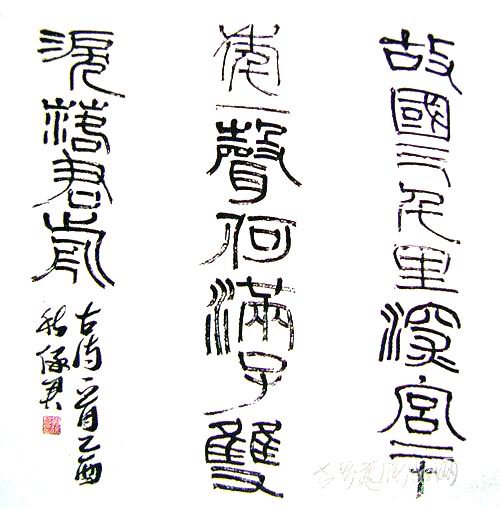 故國三千里深宮二十
年一聲何滿子雙
淚落君前
古詩一首乙酉
秋